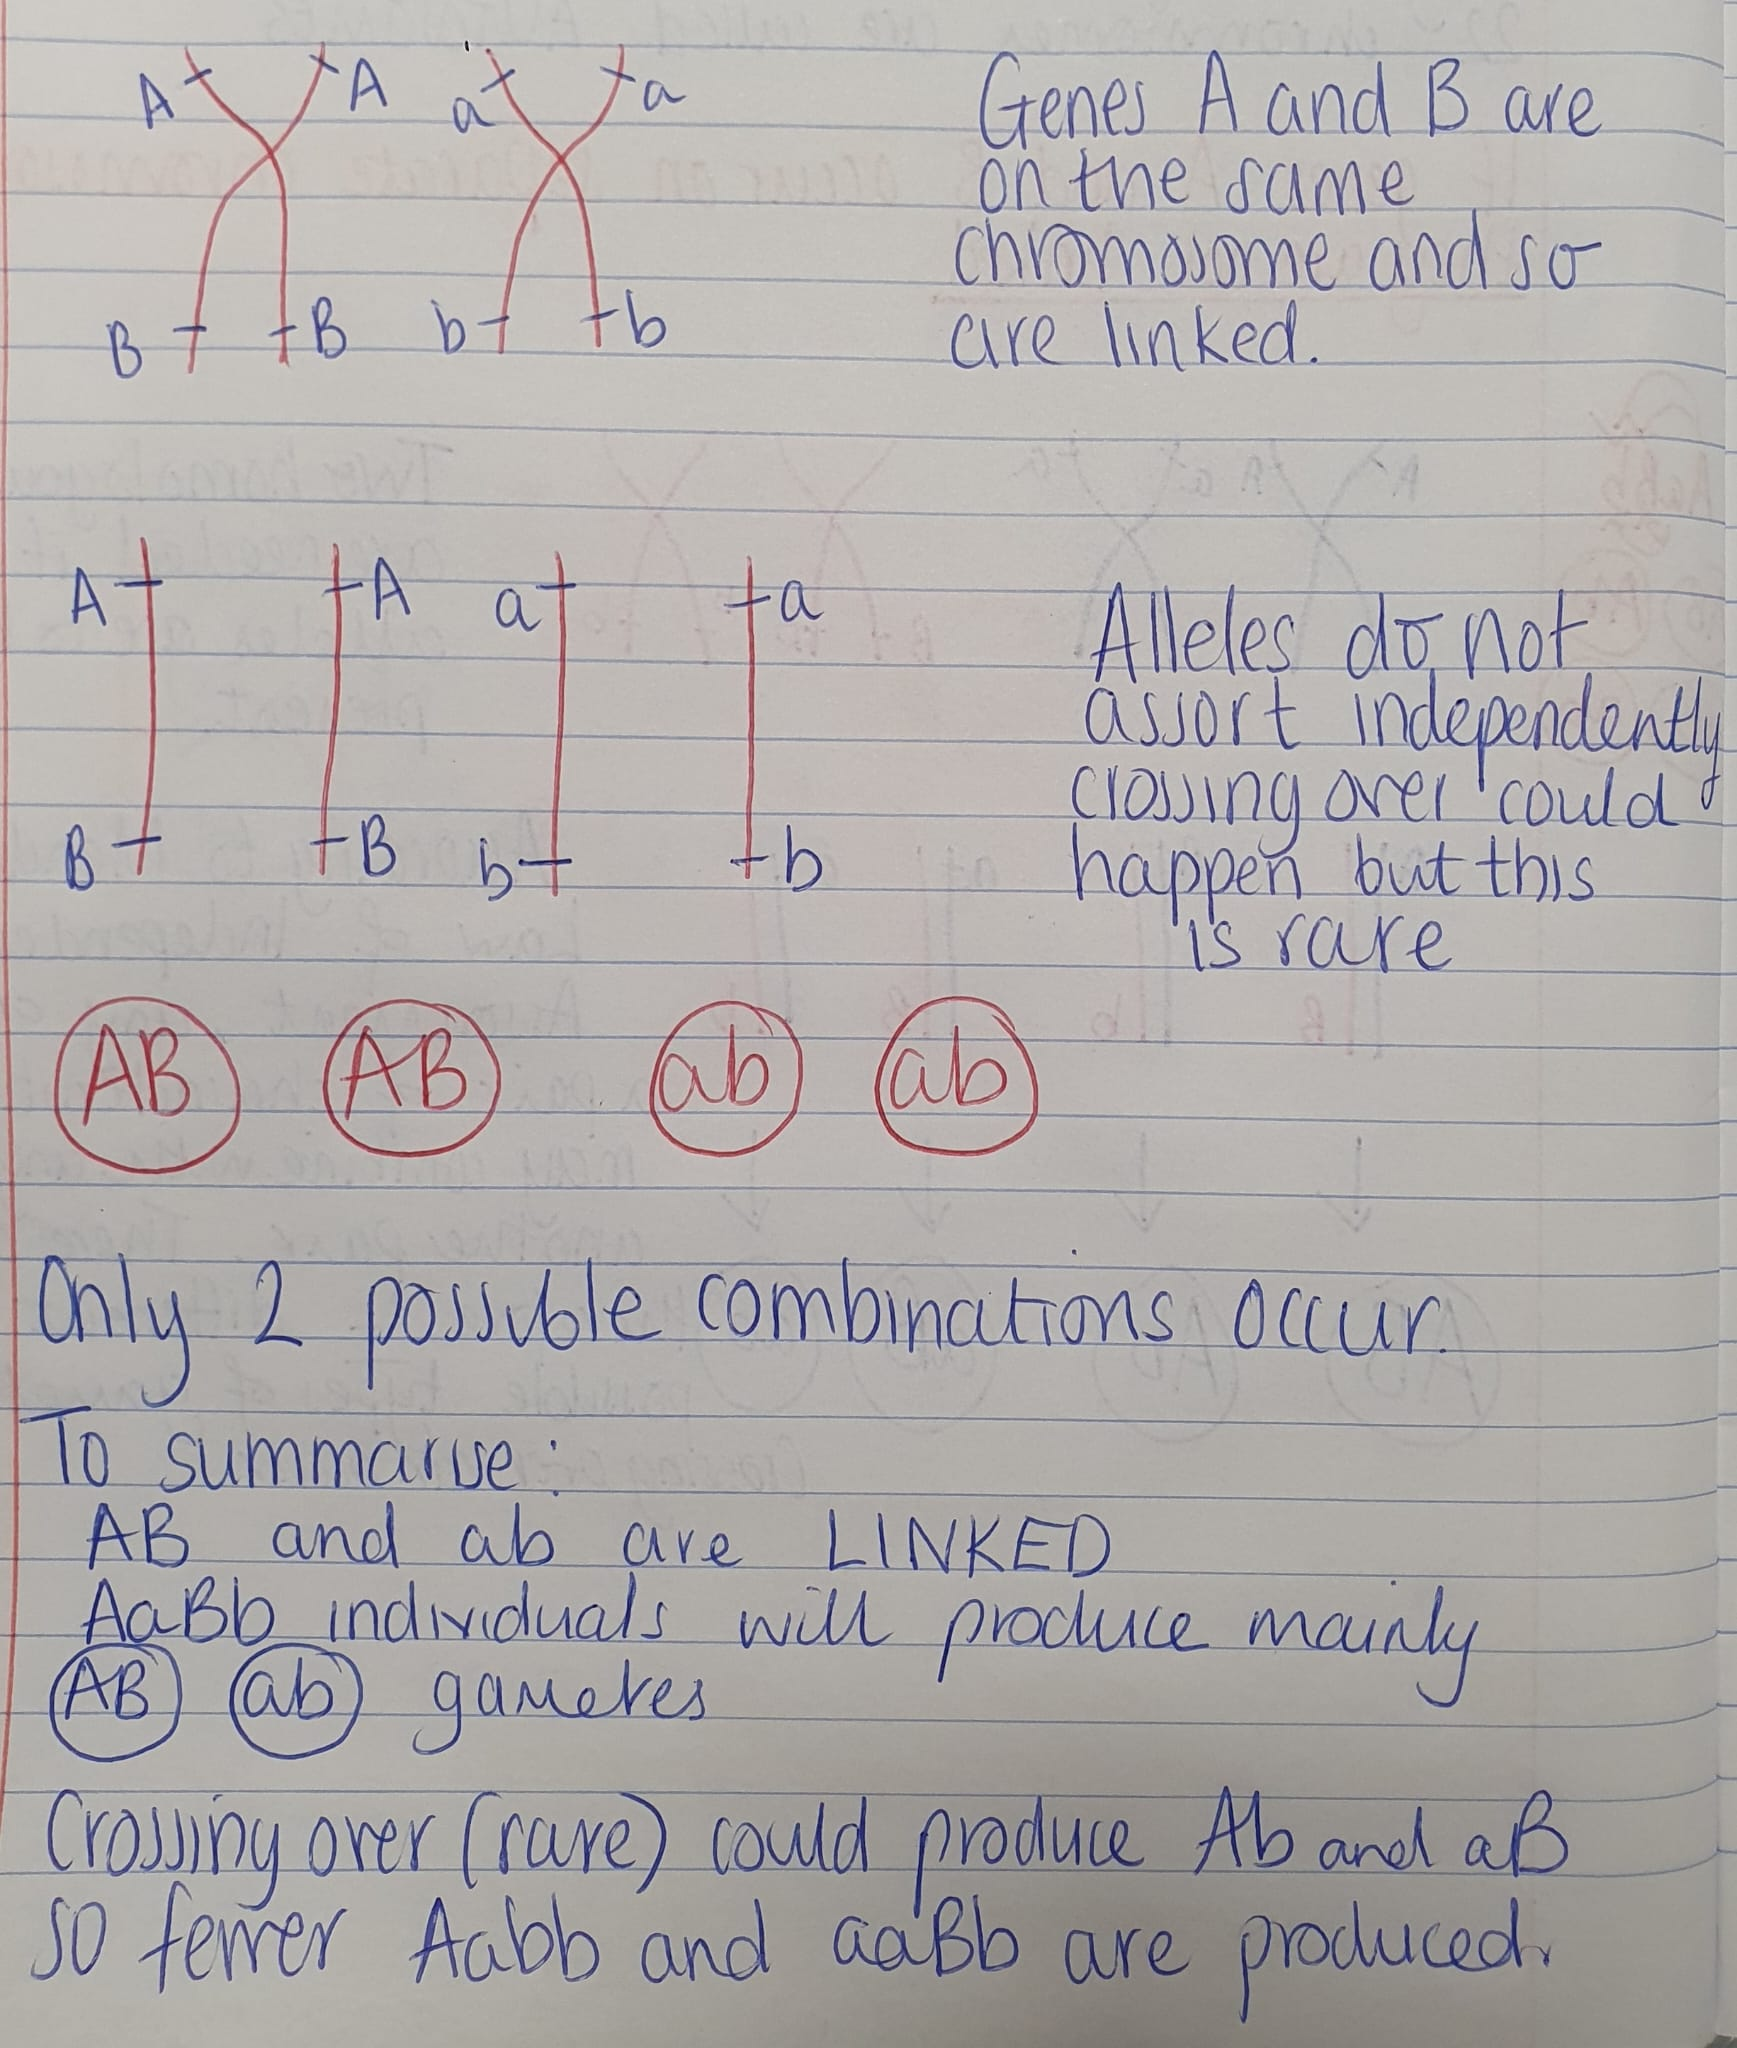 A A a a
B B b b
Genes A and B are
on the same
chromosome and so
are linked.
A A a a
B B b b
Alleles do not
assort independently
crossing over could
happen but this
is rare
AB AB ab ab
Only 2 possible combinations occur.
To summarise:
AB and ab are LINKED
AaBb individuals will produce mainly
AB ab gametes
Crossing over (rare) could produce Ab and aB
so fewer Aabb and aaBb are produced.